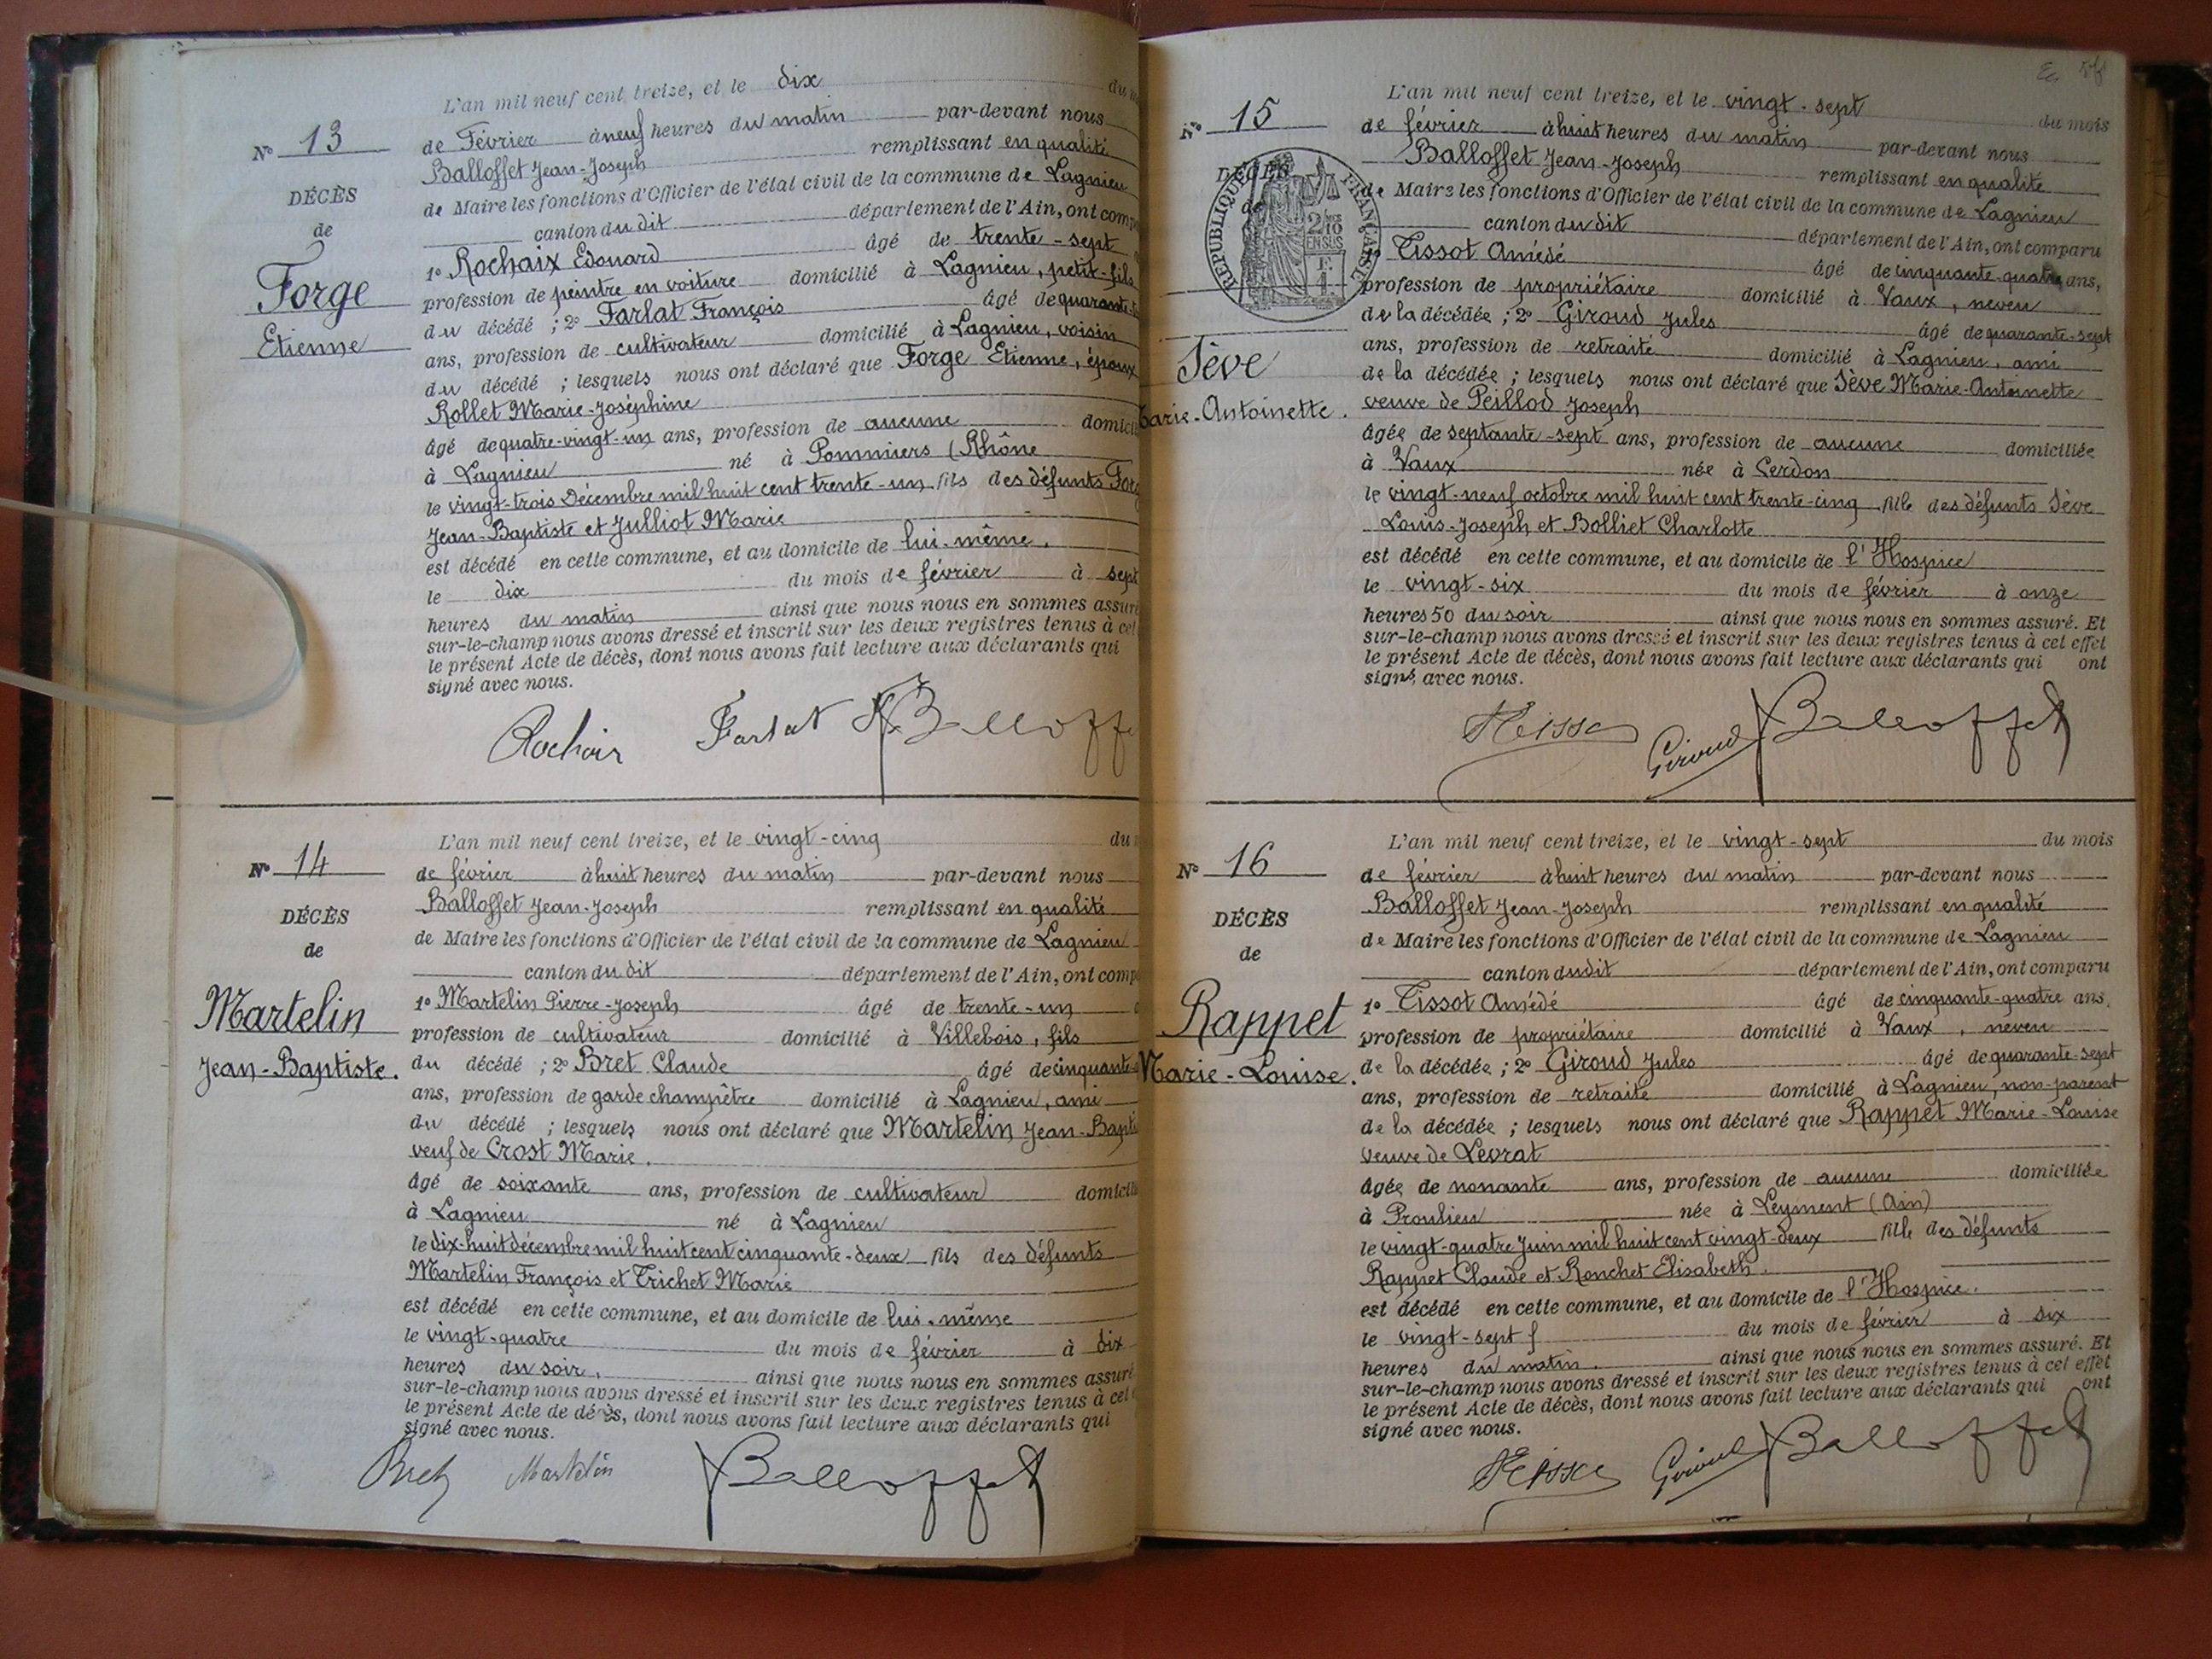 L'an mil neuf cent treize, et le dix du
de Février à neuf heures du matin par-devant nous
Balloffet Jean-Joseph remplissant en qualité
de Maire les fonctions d'Officier de l'état civil de la commune de Lagnieu
canton du dit département de l'Ain, ont
1º Rochaix Edouard âgé de trente-sept
profession de peintre en voiture domicilié à Lagnieu, petit-fils
du décédé ; 2º Farlat François âgé de
ans, profession de cultivateur domicilié à Lagnieu, voisin
du décédé ; lesquels nous ont déclaré que Forge Etienne, époux
Rollet Marie-Joséphine
âgé de quatre-vingt-un ans, profession de aucune
à Lagnieu né à Pommiers (Rhône
le vingt-trois Décembre mil huit cent trente-un fils des défunts
Jean-Baptiste et Julliot Marie
est décédé en cette commune, et au domicile de lui-même.
le dix du mois de février à sept
heures du matin ainsi que nous nous en sommes
sur-le-champ nous avons dressé et inscrit sur les deux registres tenus à cet
le présent Acte de décès, dont nous avons fait lecture aux déclarants qui
signé avec nous.
Nº 13
DÉCÈS
de
Forge
Etienne
Rochaix Farlat Balloffe
L'an mil neuf cent treize, et le vingt-cinq du
de février à huit heures du matin par-devant nous
Balloffet Jean-Joseph remplissant en qualité
de Maire les fonctions d'Officier de l'état civil de la commune de Lagnieu
canton du dit département de l'Ain, ont
1º Martelin Pierre-Joseph âgé de trente-un
profession de cultivateur domicilié à Villebois, fils
du décédé ; 2º Bret Claude âgé de cinquante
ans, profession de garde champêtre domicilié à Lagnieu, ami
du décédé ; lesquels nous ont déclaré que Martelin Jean-
veuf de Crost Marie.
âgé de soixante ans, profession de cultivateur
à Lagnieu né à Lagnieu
le dix-huit décembre mil huit cent cinquante-deux fils des défunts
Martelin François et Trichet Marie
est décédé en cette commune, et au domicile de lui-même
le vingt-quatre du mois de février à dix
heures du soir, ainsi que nous nous en sommes assuré
sur-le-champ nous avons dressé et inscrit sur les deux registres tenus à cet
le présent Acte de décès, dont nous avons fait lecture aux déclarants qui
signé avec nous.
Nº 14
DÉCÈS
de
Martelin
Jean-Baptiste.
Bret Martelin Balloffet
L'an mil neuf cent treize, et le vingt-sept du mois
de février à huit heures du matin par-devant nous
Balloffet Jean-Joseph remplissant en qualité
de Maire les fonctions d'Officier de l'état civil de la commune de Lagnieu
canton du dit département de l'Ain, ont comparu
Tissot Amédé âgé de cinquante-quatre ans,
profession de propriétaire domicilié à Vaux, neveu
de la décédée ; 2º Giroud Jules âgé de quarante-sept
ans, profession de retraité domicilié à Lagnieu, ami
de la décédée ; lesquels nous ont déclaré que Sève Marie-Antoinette
veuve de Peillod Joseph
âgée de septante-sept ans, profession de aucune domiciliée
à Vaux née à Cerdon
le vingt-neuf octobre mil huit cent trente-cinq fille des défunts Sève
Louis-Joseph et Bolliet Charlotte
est décédé en cette commune, et au domicile de l'Hospice
le vingt-six du mois de février à onze
heures 50 du soir ainsi que nous nous en sommes assuré. Et
sur-le-champ nous avons dressé et inscrit sur les deux registres tenus à cet effet
le présent Acte de décès, dont nous avons fait lecture aux déclarants qui ont
signé avec nous.
Nº 15
DÉCÈS
de
RÉPUBLIQUE FRANÇAISE
2/10 EN SUS
Sève
arie-Antoinette.
Giroud Balloffet
L'an mil neuf cent treize, et le vingt-sept du mois
de février à huit heures du matin par-devant nous
Balloffet Jean-Joseph remplissant en qualité
de Maire les fonctions d'Officier de l'état civil de la commune de Lagnieu
canton du dit département de l'Ain, ont comparu
1º Tissot Amédé âgé de cinquante-quatre ans,
profession de propriétaire domicilié à Vaux, neveu
de la décédée ; 2º Giroud Jules âgé de quarante-sept
ans, profession de retraité domicilié à Lagnieu, non-parent
de la décédée ; lesquels nous ont déclaré que Rappet Marie-Louise
veuve de Levrat
âgée de nonante ans, profession de aucune domiciliée
à Proulieu née à Leyment (Ain)
le vingt-quatre Juin mil huit cent vingt-deux fille des défunts
Rappet Claude et Ronchet Elisabeth.
est décédé en cette commune, et au domicile de l'Hospice.
le vingt-sept du mois de février à six
heures du matin. ainsi que nous nous en sommes assuré. Et
sur-le-champ nous avons dressé et inscrit sur les deux registres tenus à cet effet
le présent Acte de décès, dont nous avons fait lecture aux déclarants qui ont
signé avec nous.
Nº 16
DÉCÈS
de
Rappet
Marie-Louise.
Giroud Balloffet